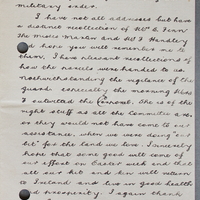 military order.
I have not all addresses but have
a distinct recollection of Mrs
The Music and Mrs J Hindley
and hope you will remember me to
them. I have pleasant recollections of
how the parcels were handed to us
notwithstanding the vigilance of the
guards especially the morning
I outwitted the She is of the
right stuff as all the Committee are
or they would not have come to our
assistance when we were doing "our
bit" for the land we live. I sincerely
hope that some good will come of
our effort on Easter week and that
all our kit and kin will return
to Ireland and live in good health
and prosperity. I again thank